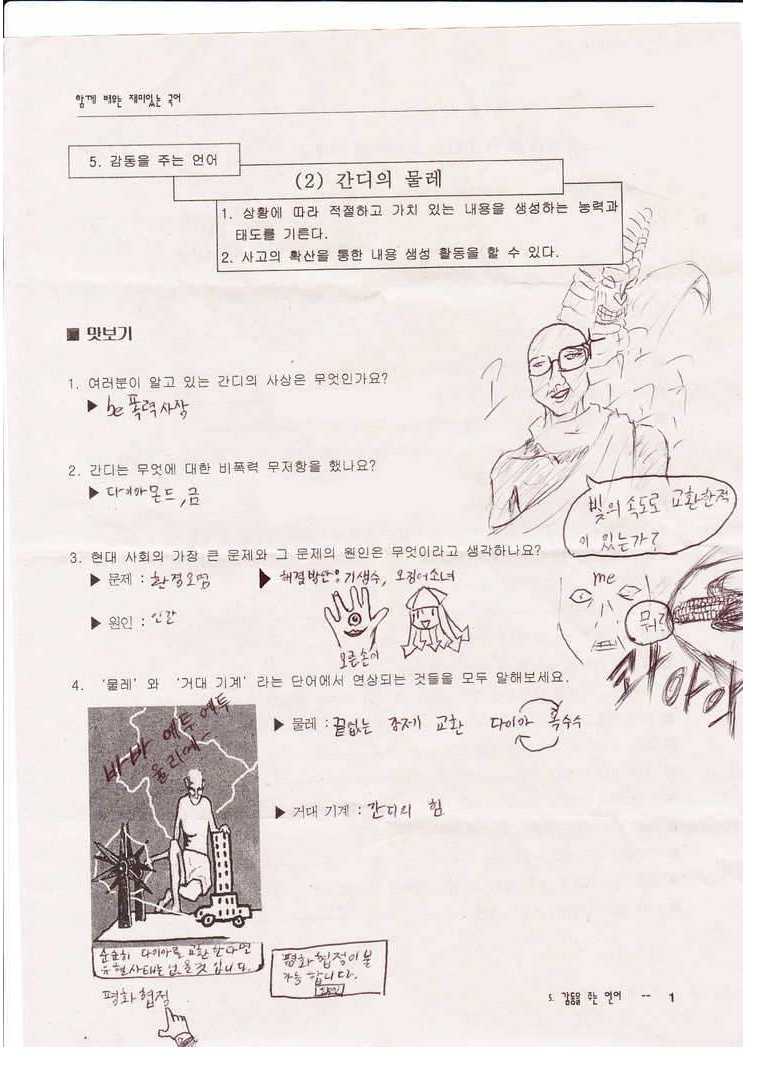 함께 배우는 재미있는 국어
5. 감동을 주는 언어
(2) 간디의 물레
1. 상황에 따라 적절하고 가치 있는 내용을 생성하는 능력과
태도를 기른다.
2. 사고의 확산을 통한 내용 생성 활동을 할 수 있다.
■ 맛보기
1. 여러분이 알고 있는 간디의 사상은 무엇인가요?
▶ be폭력사작
2. 간디는 무엇에 대한 비폭력 무저항을 했나요?
▶ 다이아몬드, 금
빛의 속도로 교환한적
이 있는가?
3. 현대 사회의 가장 큰 문제와 그 문제의 원인은 무엇이라고 생각하나요?
▶ 문제 : 환경오염 ▶ 해결방안 기생수, 오징어소녀
▶ 원인 : 인간
오른손이
me
뭐?
콰아아
4. '물레'와 '거대 기계'라는 단어에서 연상되는 것들을 모두 말해보세요.
바바 예투 예투
울리에~
▶ 물레 : 끝없는 강제 교환 다이아 옥수수
▶ 거대 기계 : 간디의 힘
순순히 다이아로 교환한다면
유혈사태는 없을것 입니다.
평화협정이 불
가능 합니다.
확인
평화협정
5. 감동을 주는 언어 -- 1